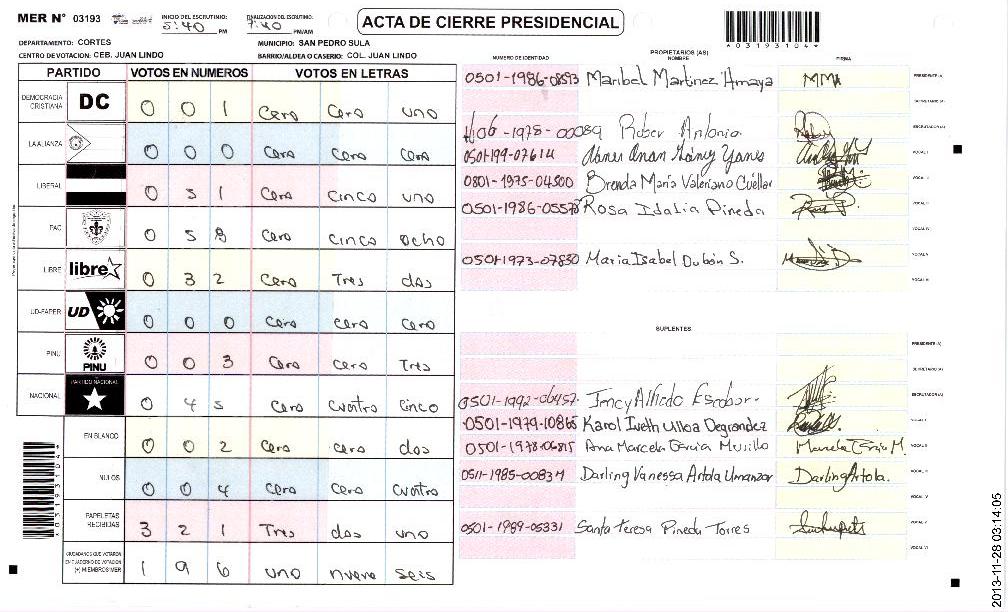 MER N° 03193
INICIO DEL ESCRUTINIO: 5:40 PM
FINALIZACIÓN DEL ESCRUTINIO: 7:40 PM/AM
ACTA DE CIERRE PRESIDENCIAL
*03193104*
DEPARTAMENTO: CORTES
MUNICIPIO: SAN PEDRO SULA
CENTRO DE VOTACION: CEB. JUAN LINDO
BARRIO/ALDEA O CASERIO: COL. JUAN LINDO
PARTIDO VOTOS EN NUMEROS VOTOS EN LETRAS
DEMOCRACIA CRISTIANA DC 0 0 1 Cero Cero uno
LA ALIANZA 0 0 0 Cero Cero Cero
LIBERAL 0 5 1 Cero Cinco uno
PAC 0 5 8 Cero cinco ocho
LIBRE libre 0 3 2 Cero Tres dos
UD-FAPER UD 0 0 0 Cero Cero Cero
PINU PINU 0 0 3 Cero Cero Tres
NACIONAL PARTIDO NACIONAL 0 4 5 Cero Cuatro cinco
EN BLANCO 0 0 2 Cero Cero dos
NULOS 0 0 4 Cero Cero cuatro
PAPELETAS RECIBIDAS 3 2 1 Tres dos uno
CIUDADANOS QUE VOTARON EN CUADERNO DE VOTACION (+) MIEMBROS MER 1 9 6 uno nueve seis
PROPIETARIOS (AS)
NUMERO DE IDENTIDAD NOMBRE FIRMA
0501-1986-0893 Maribel Martinez Amaya MMA PRESIDENTE (A)
SECRETARIO (A)
1978-00089 Rober Antonio ESCRUTADOR (A)
0501-199-07614 VOCAL I
0801-1975-04500 Brenda María Valeriano Cuéllar VOCAL II
0501-1986-05578 Rosa Idalia Pineda VOCAL III
VOCAL IV
0501-1973-07830 Maria Isabel Dubón S. VOCAL V
VOCAL VI
SUPLENTES
PRESIDENTE (A)
SECRETARIO (A)
0501-1992-06457 Jency Alfredo Escobar ESCRUTADOR (A)
0501-1979-10865 Karol Iveth Ulloa Degrandez VOCAL I
0501-1978-06815 Ana Marcela Garcia Murillo Marcela Garcia M. VOCAL II
0511-1985-00834 Darling Vanessa Artola Umanzor Darling Artola. VOCAL III
VOCAL IV
0501-1989-05331 Santa Teresa Pineda Torres VOCAL V
VOCAL VI
2013-11-28 03:14:05